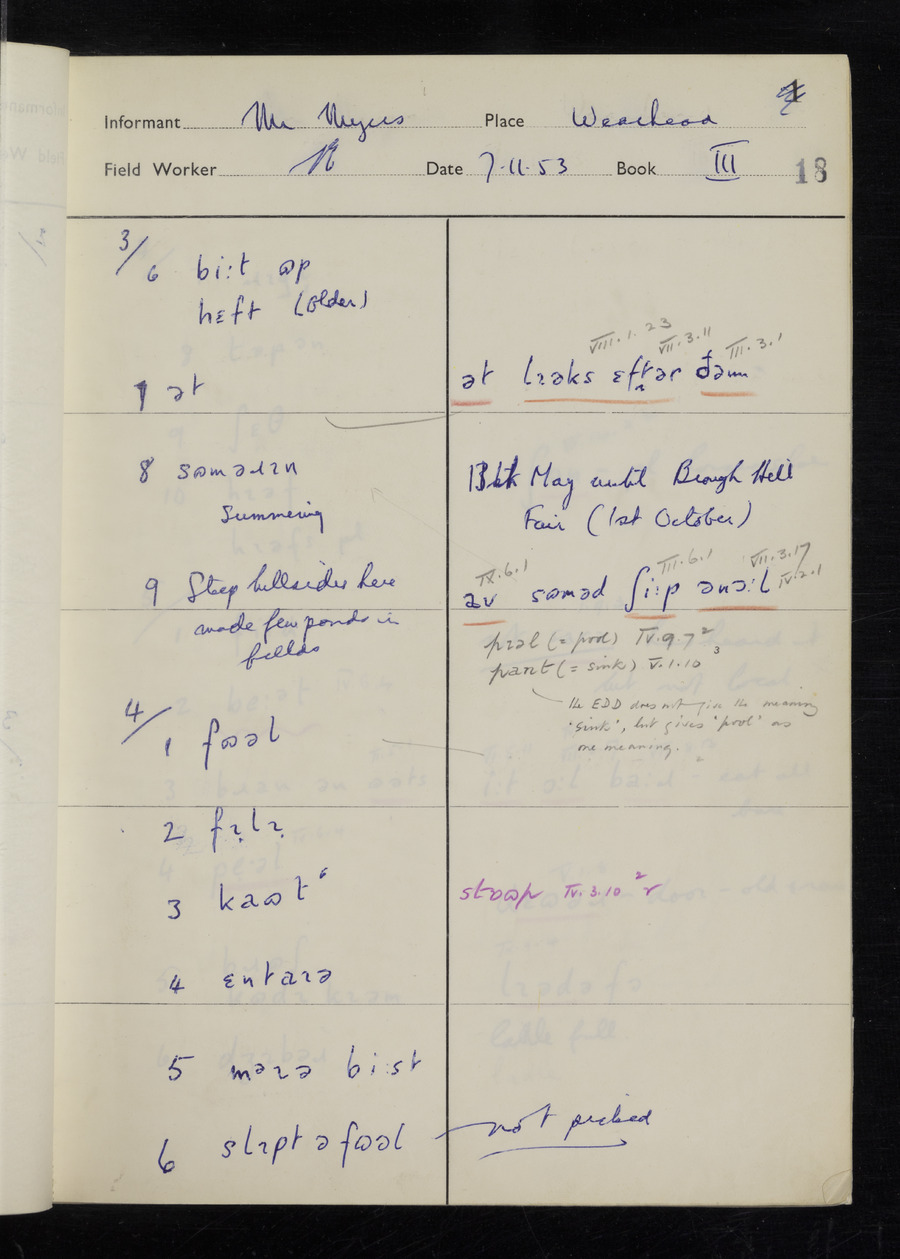 Informant Mr Myers Place Wearhead
Field Worker Date 7·11·53 Book III 18
3/
6 bi:t ʊp
hɛft (older)
VIII. 1. 23 VII. 3. 11 III. 3. 1
7 ət ət lɪəks ɛftər ðəm
8 sʊmərɪn 13th May until Brough Hill
Summering Fair (1st October)
IX. 6. 1 III. 6. 1 VII. 3. 17
IV. 2. 1
9 Steep hillsides here av sʊməd ʃi:p ənə:l
made few ponds in
fields
pɪəl (= pool) IV. 9. 7²
pant (= sink) V. 1. 10³
the EDD does not give the meaning
'sink', but gives 'pool' as
one meaning.
4/
1 fʊəl
2 fɪlɪ
3 kaʊt stʊəp IV. 3. 10² r
4 ɛntaɪə
5 mɛɪə bi:st
6 slɪpt ə fʊəl not picked